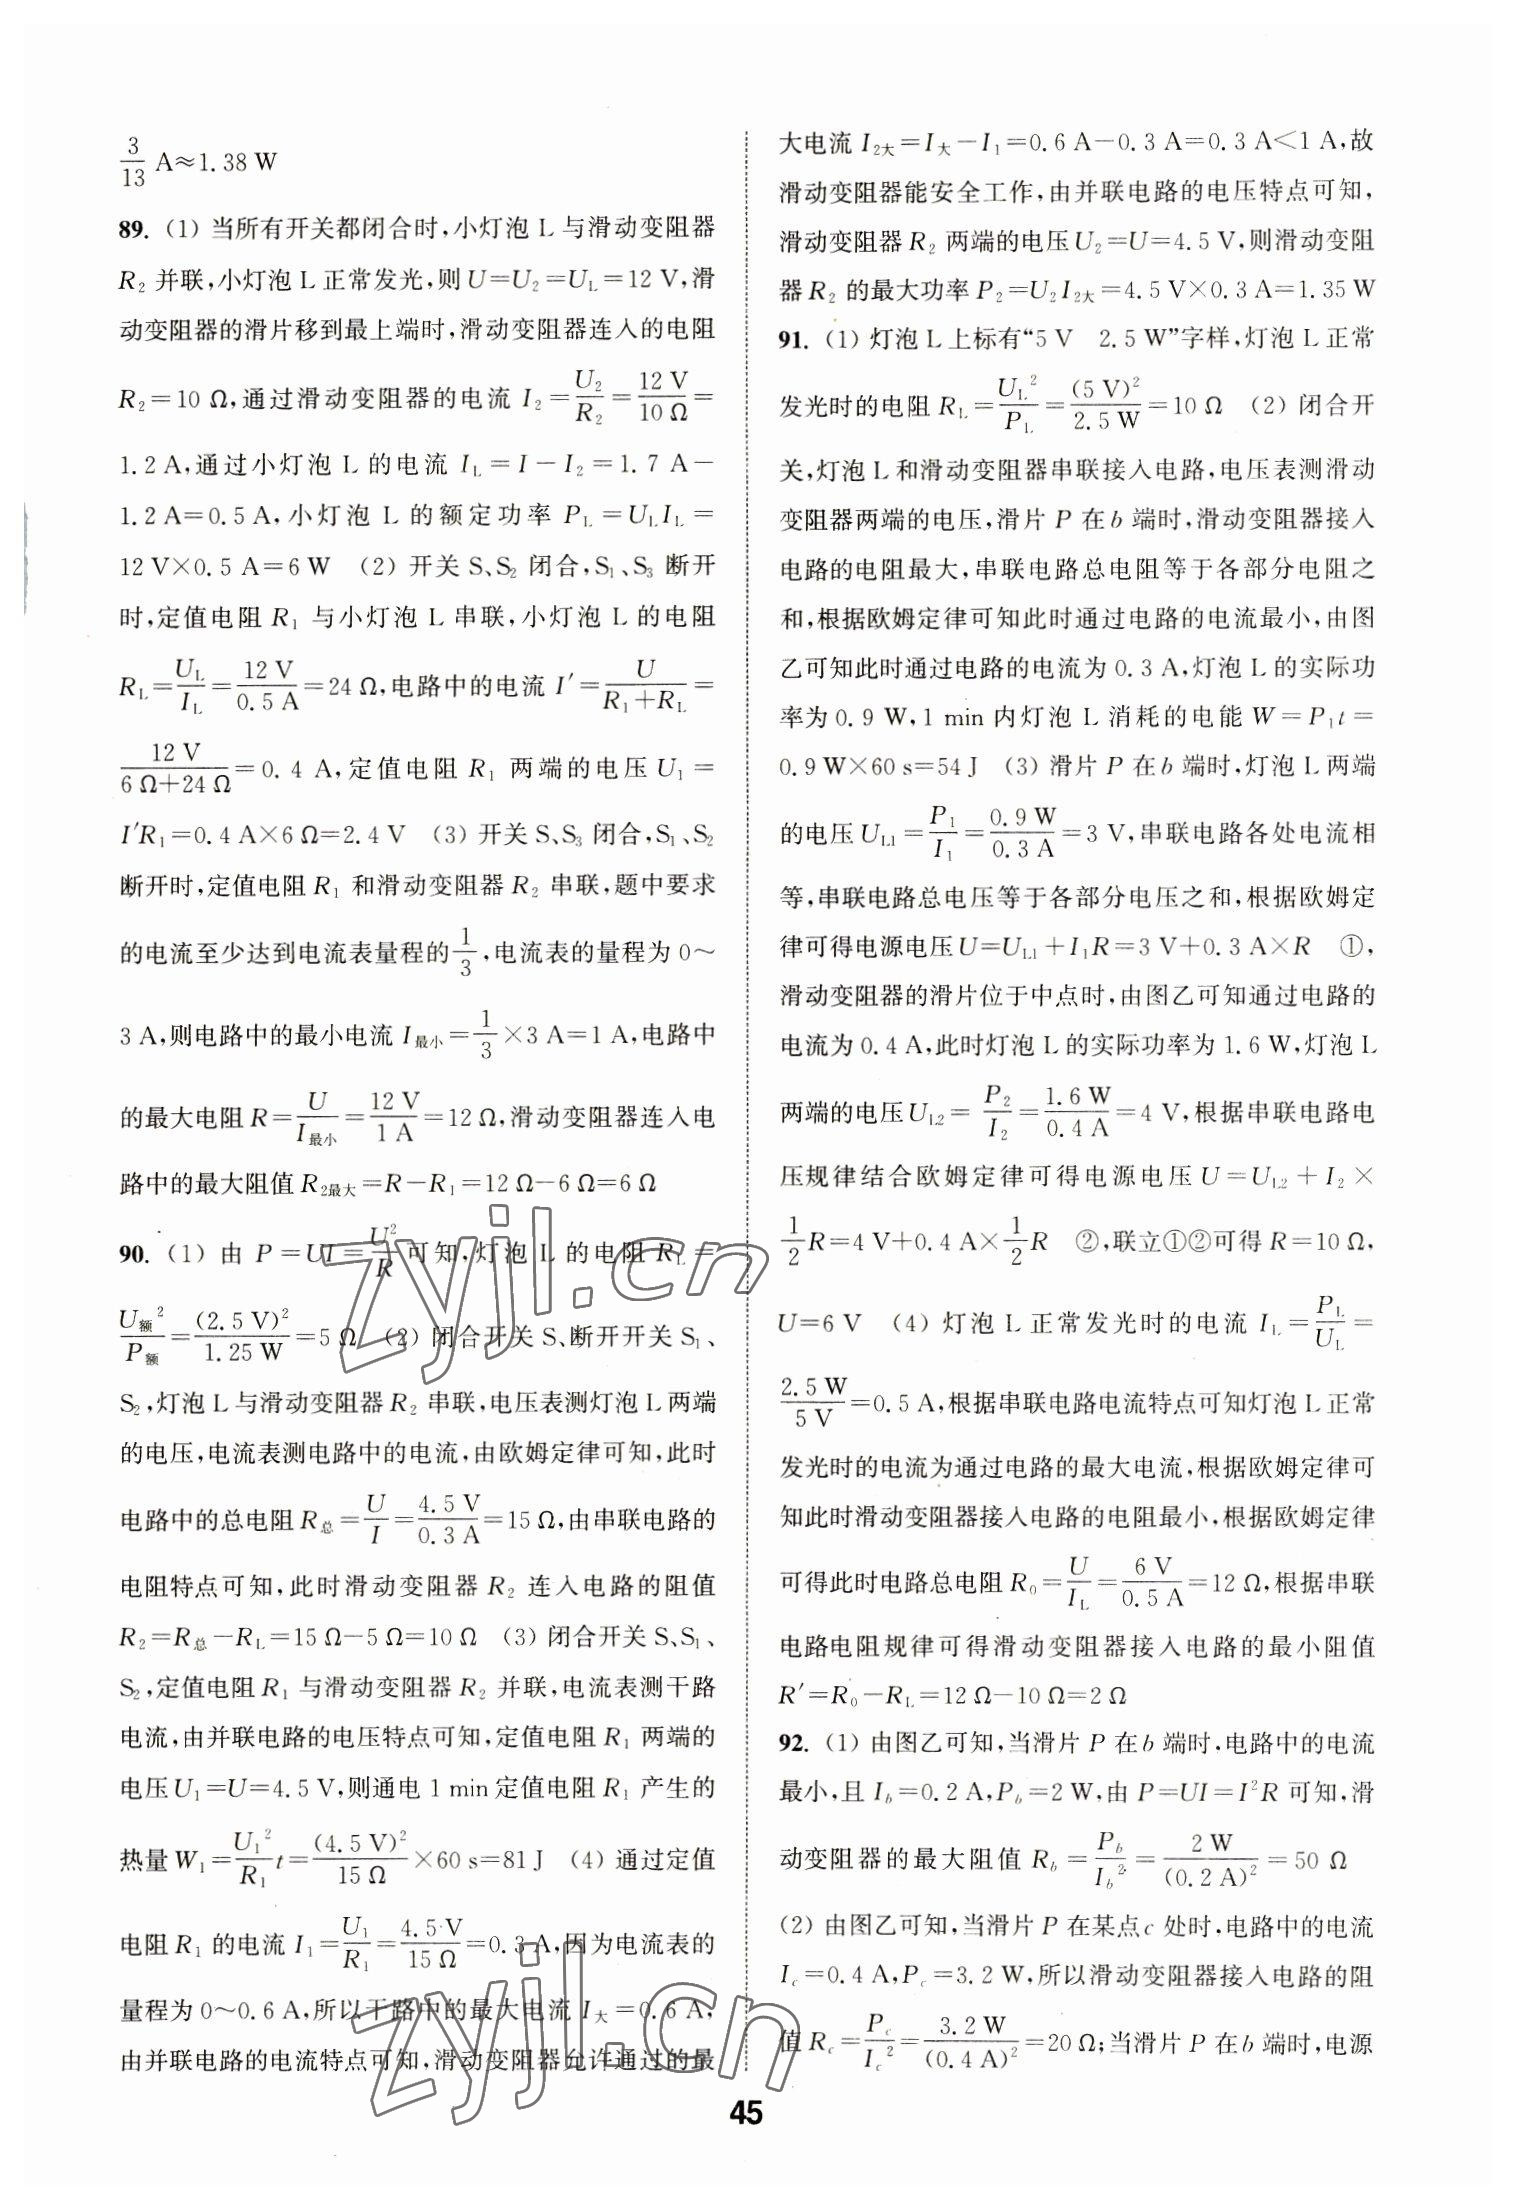 3/13 A≈1.38 W
89. (1) 当所有开关都闭合时,小灯泡 L 与滑动变阻器
R₂ 并联,小灯泡 L 正常发光,则 U=U₂=U_L=12 V,滑
动变阻器的滑片移到最上端时,滑动变阻器连入的电阻
R₂=10 Ω,通过滑动变阻器的电流 I₂=U₂/R₂=12 V/10 Ω=
1.2 A,通过小灯泡 L 的电流 I_L=I-I₂=1.7 A-
1.2 A=0.5 A,小灯泡 L 的额定功率 P_L=U_L I_L=
12 V×0.5 A=6 W (2) 开关 S、S₂ 闭合,S₁、S₃ 断开
时,定值电阻 R₁ 与小灯泡 L 串联,小灯泡 L 的电阻
R_L=U_L/I_L=12 V/0.5 A=24 Ω,电路中的电流 I′=U/(R₁+R_L)=
12 V/(6 Ω+24 Ω)=0.4 A,定值电阻 R₁ 两端的电压 U₁=
I′R₁=0.4 A×6 Ω=2.4 V (3) 开关 S、S₃ 闭合,S₁、S₂
断开时,定值电阻 R₁ 和滑动变阻器 R₂ 串联,题中要求
的电流至少达到电流表量程的1/3,电流表的量程为 0~
3 A,则电路中的最小电流 I最小=1/3×3 A=1 A,电路中
的最大电阻 R=U/I最小=12 V/1 A=12 Ω,滑动变阻器连入电
路中的最大阻值 R₂最大=R-R₁=12 Ω-6 Ω=6 Ω
90. (1) 由 P=UI=U²/R 可知,灯泡 L 的电阻 R_L=
U额²/P额=(2.5 V)²/1.25 W=5 Ω (2) 闭合开关 S、断开开关 S₁、
S₂,灯泡 L 与滑动变阻器 R₂ 串联,电压表测灯泡 L 两端
的电压,电流表测电路中的电流,由欧姆定律可知,此时
电路中的总电阻 R总=U/I=4.5 V/0.3 A=15 Ω,由串联电路的
电阻特点可知,此时滑动变阻器 R₂ 连入电路的阻值
R₂=R总-R_L=15 Ω-5 Ω=10 Ω (3) 闭合开关 S、S₁、
S₂,定值电阻 R₁ 与滑动变阻器 R₂ 并联,电流表测干路
电流,由并联电路的电压特点可知,定值电阻 R₁ 两端的
电压 U₁=U=4.5 V,则通电 1 min 定值电阻 R₁ 产生的
热量 W₁=U₁²/R₁ t=(4.5 V)²/15 Ω×60 s=81 J (4) 通过定值
电阻 R₁ 的电流 I₁=U₁/R₁=4.5 V/15 Ω=0.3 A,因为电流表的
量程为 0~0.6 A,所以干路中的最大电流 I大=0.6 A,
由并联电路的电流特点可知,滑动变阻器允许通过的最
大电流 I₂大=I大-I₁=0.6 A-0.3 A=0.3 A<1 A,故
滑动变阻器能安全工作,由并联电路的电压特点可知,
滑动变阻器 R₂ 两端的电压 U₂=U=4.5 V,则滑动变阻
器 R₂ 的最大功率 P₂=U₂I₂大=4.5 V×0.3 A=1.35 W
91. (1) 灯泡 L 上标有“5 V 2.5 W”字样,灯泡 L 正常
发光时的电阻 R_L=U_L²/P_L=(5 V)²/2.5 W=10 Ω (2) 闭合开
关,灯泡 L 和滑动变阻器串联接入电路,电压表测滑动
变阻器两端的电压,滑片 P 在 b 端时,滑动变阻器接入
电路的电阻最大,串联电路总电阻等于各部分电阻之
和,根据欧姆定律可知此时通过电路的电流最小,由图
乙可知此时通过电路的电流为 0.3 A,灯泡 L 的实际功
率为 0.9 W,1 min 内灯泡 L 消耗的电能 W=P₁t=
0.9 W×60 s=54 J (3) 滑片 P 在 b 端时,灯泡 L 两端
的电压 U_L1=P₁/I₁=0.9 W/0.3 A=3 V,串联电路各处电流相
等,串联电路总电压等于各部分电压之和,根据欧姆定
律可得电源电压 U=U_L1+I₁R=3 V+0.3 A×R ①,
滑动变阻器的滑片位于中点时,由图乙可知通过电路的
电流为 0.4 A,此时灯泡 L 的实际功率为 1.6 W,灯泡 L
两端的电压 U_L2=P₂/I₂=1.6 W/0.4 A=4 V,根据串联电路电
压规律结合欧姆定律可得电源电压 U=U_L2+I₂×
1/2 R=4 V+0.4 A×1/2 R ②,联立①②可得 R=10 Ω,
U=6 V (4) 灯泡 L 正常发光时的电流 I_L=P_L/U_L=
2.5 W/5 V=0.5 A,根据串联电路电流特点可知灯泡 L 正常
发光时的电流为通过电路的最大电流,根据欧姆定律可
知此时滑动变阻器接入电路的电阻最小,根据欧姆定律
可得此时电路总电阻 R₀=U/I_L=6 V/0.5 A=12 Ω,根据串联
电路电阻规律可得滑动变阻器接入电路的最小阻值
R′=R₀-R_L=12 Ω-10 Ω=2 Ω
92. (1) 由图乙可知,当滑片 P 在 b 端时,电路中的电流
最小,且 I_b=0.2 A,P_b=2 W,由 P=UI=I²R 可知,滑
动变阻器的最大阻值 R_b=P_b/I_b²=2 W/(0.2 A)²=50 Ω
(2) 由图乙可知,当滑片 P 在某点 c 处时,电路中的电流
I_c=0.4 A,P_c=3.2 W,所以滑动变阻器接入电路的阻
值 R_c=P_c/I_c²=3.2 W/(0.4 A)²=20 Ω;当滑片 P 在 b 端时,电源
45
zyjl.cn
zyjl.cn